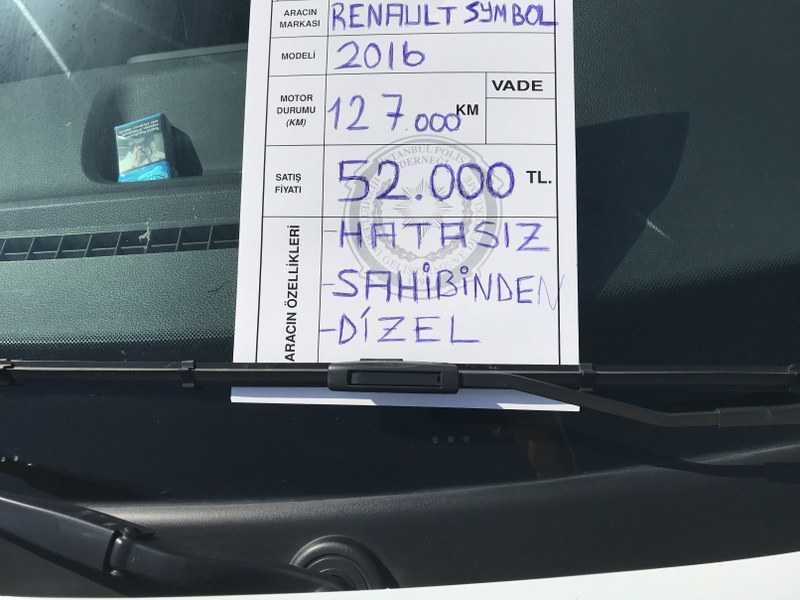 ARACIN MARKASI RENAULT SYMBOL
MODELİ 2016
MOTOR DURUMU (KM) 127.000 KM VADE
SATIŞ FİYATI 52.000 TL.
ARACIN ÖZELLİKLERİ
-HATASIZ
-SAHİBİNDEN
-DİZEL
İSTANBUL POLİS
DERNEĞİ